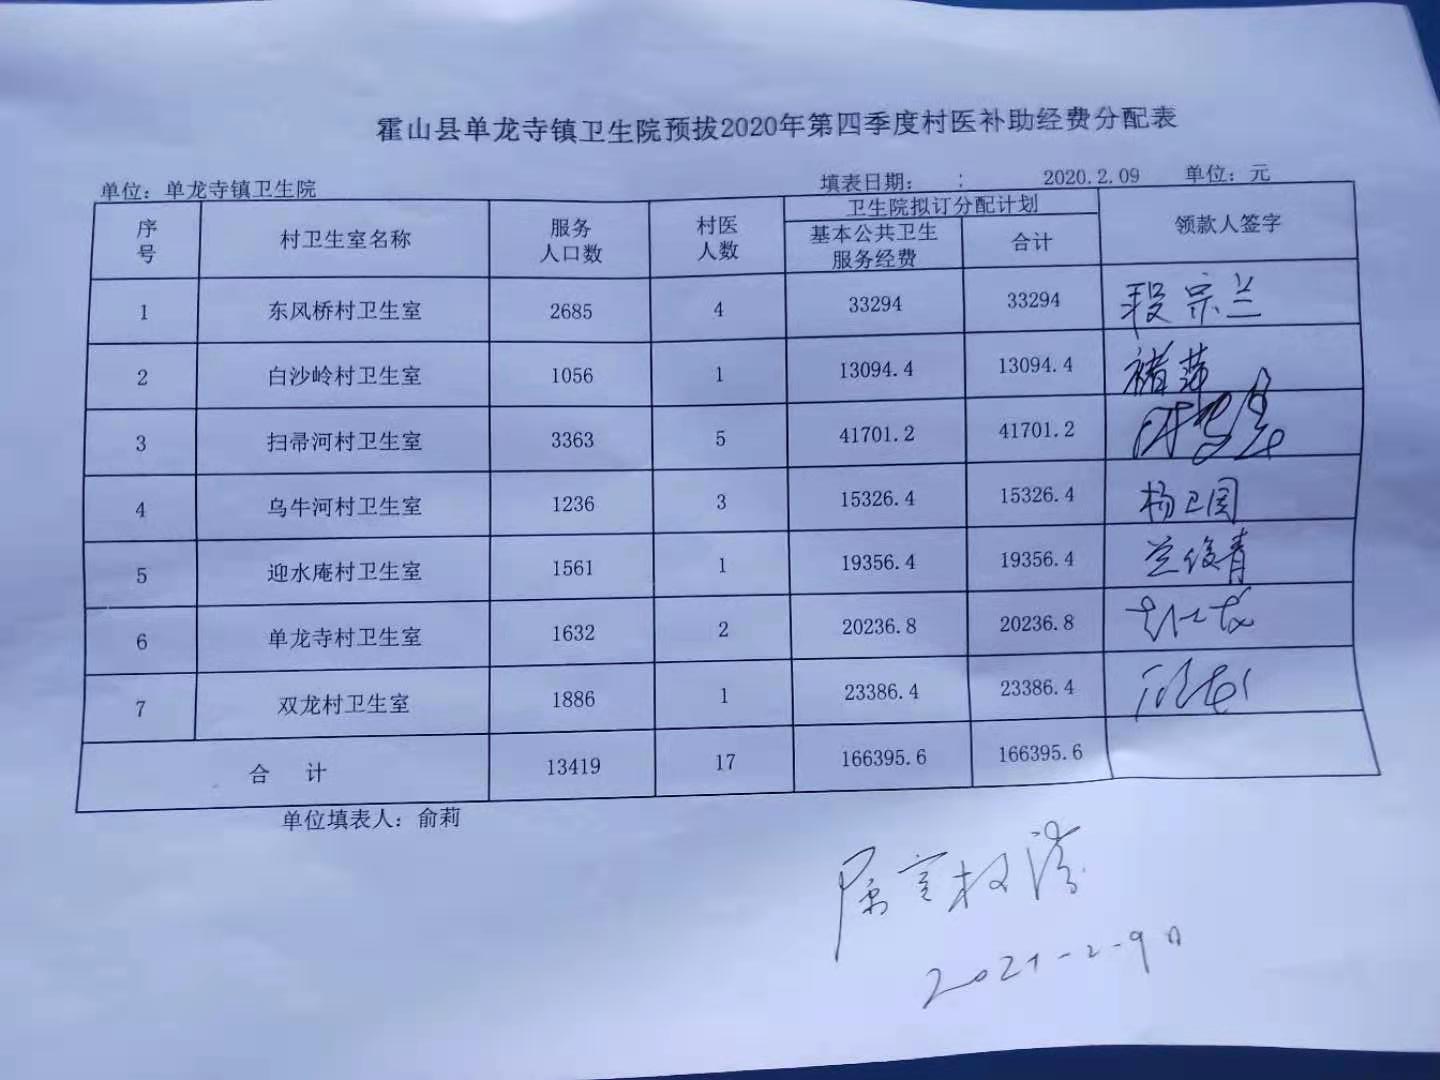 霍山县单龙寺镇卫生院预拔2020年第四季度村医补助经费分配表
单位：单龙寺镇卫生院 填表日期： ： 2020.2.09 单位：元
序号 村卫生室名称 服务人口数 村医人数 卫生院拟订分配计划 领款人签字
基本公共卫生服务经费 合计
1 东风桥村卫生室 2685 4 33294 33294 段宗兰
2 白沙岭村卫生室 1056 1 13094.4 13094.4 褚萍
3 扫帚河村卫生室 3363 5 41701.2 41701.2
4 乌牛河村卫生室 1236 3 15326.4 15326.4 杨卫国
5 迎水庵村卫生室 1561 1 19356.4 19356.4 兰俊青
6 单龙寺村卫生室 1632 2 20236.8 20236.8
7 双龙村卫生室 1886 1 23386.4 23386.4
合 计 13419 17 166395.6 166395.6
单位填表人：俞莉
2021-2-9日